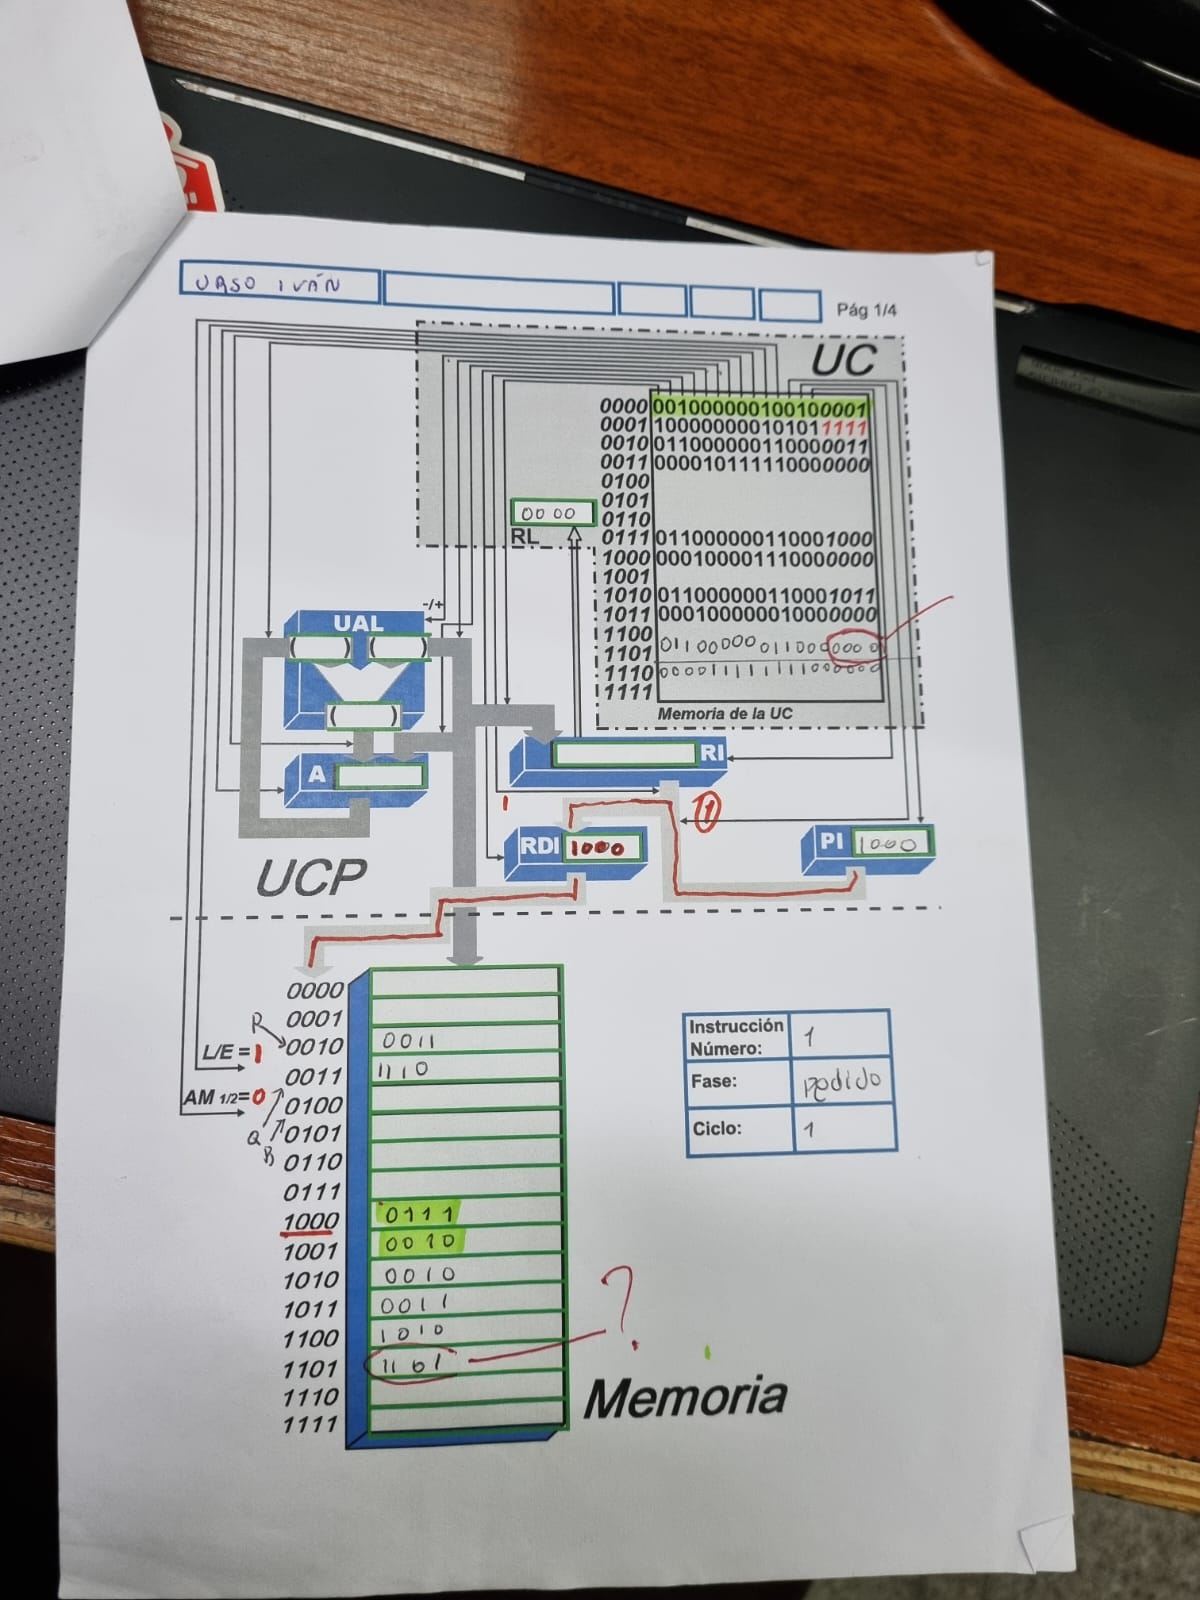 URSO IVÁN
Pág 1/4
UC
0000 00100000010010 0001
0001 10000000010101111
0010 01100000011000 0011
0011 000010111110000000
0100
0101
0110
0111 011000000110001000
1000 000100001110000000
1001
1010 011000000110001011
1011 000100000010000000
1100
1101 01100000011000 0000
1110 000011111111000000
1111
Memoria de la UC
0000
RL
-/+
UAL
( )
( )
( )
RI
A
1
1
RDI 1000
PI 1000
UCP
0000
0001
R
0010 0011
L/E = 1
0011 1110
AM 1/2=0
0100
Q
0101
B
0110
0111
1000 0111
1001 0010
1010 0010
1011 0011
1100 1010
1101 1101
?
1110
1111
Memoria
Instrucción
Número: 1
Fase: pedido
Ciclo: 1